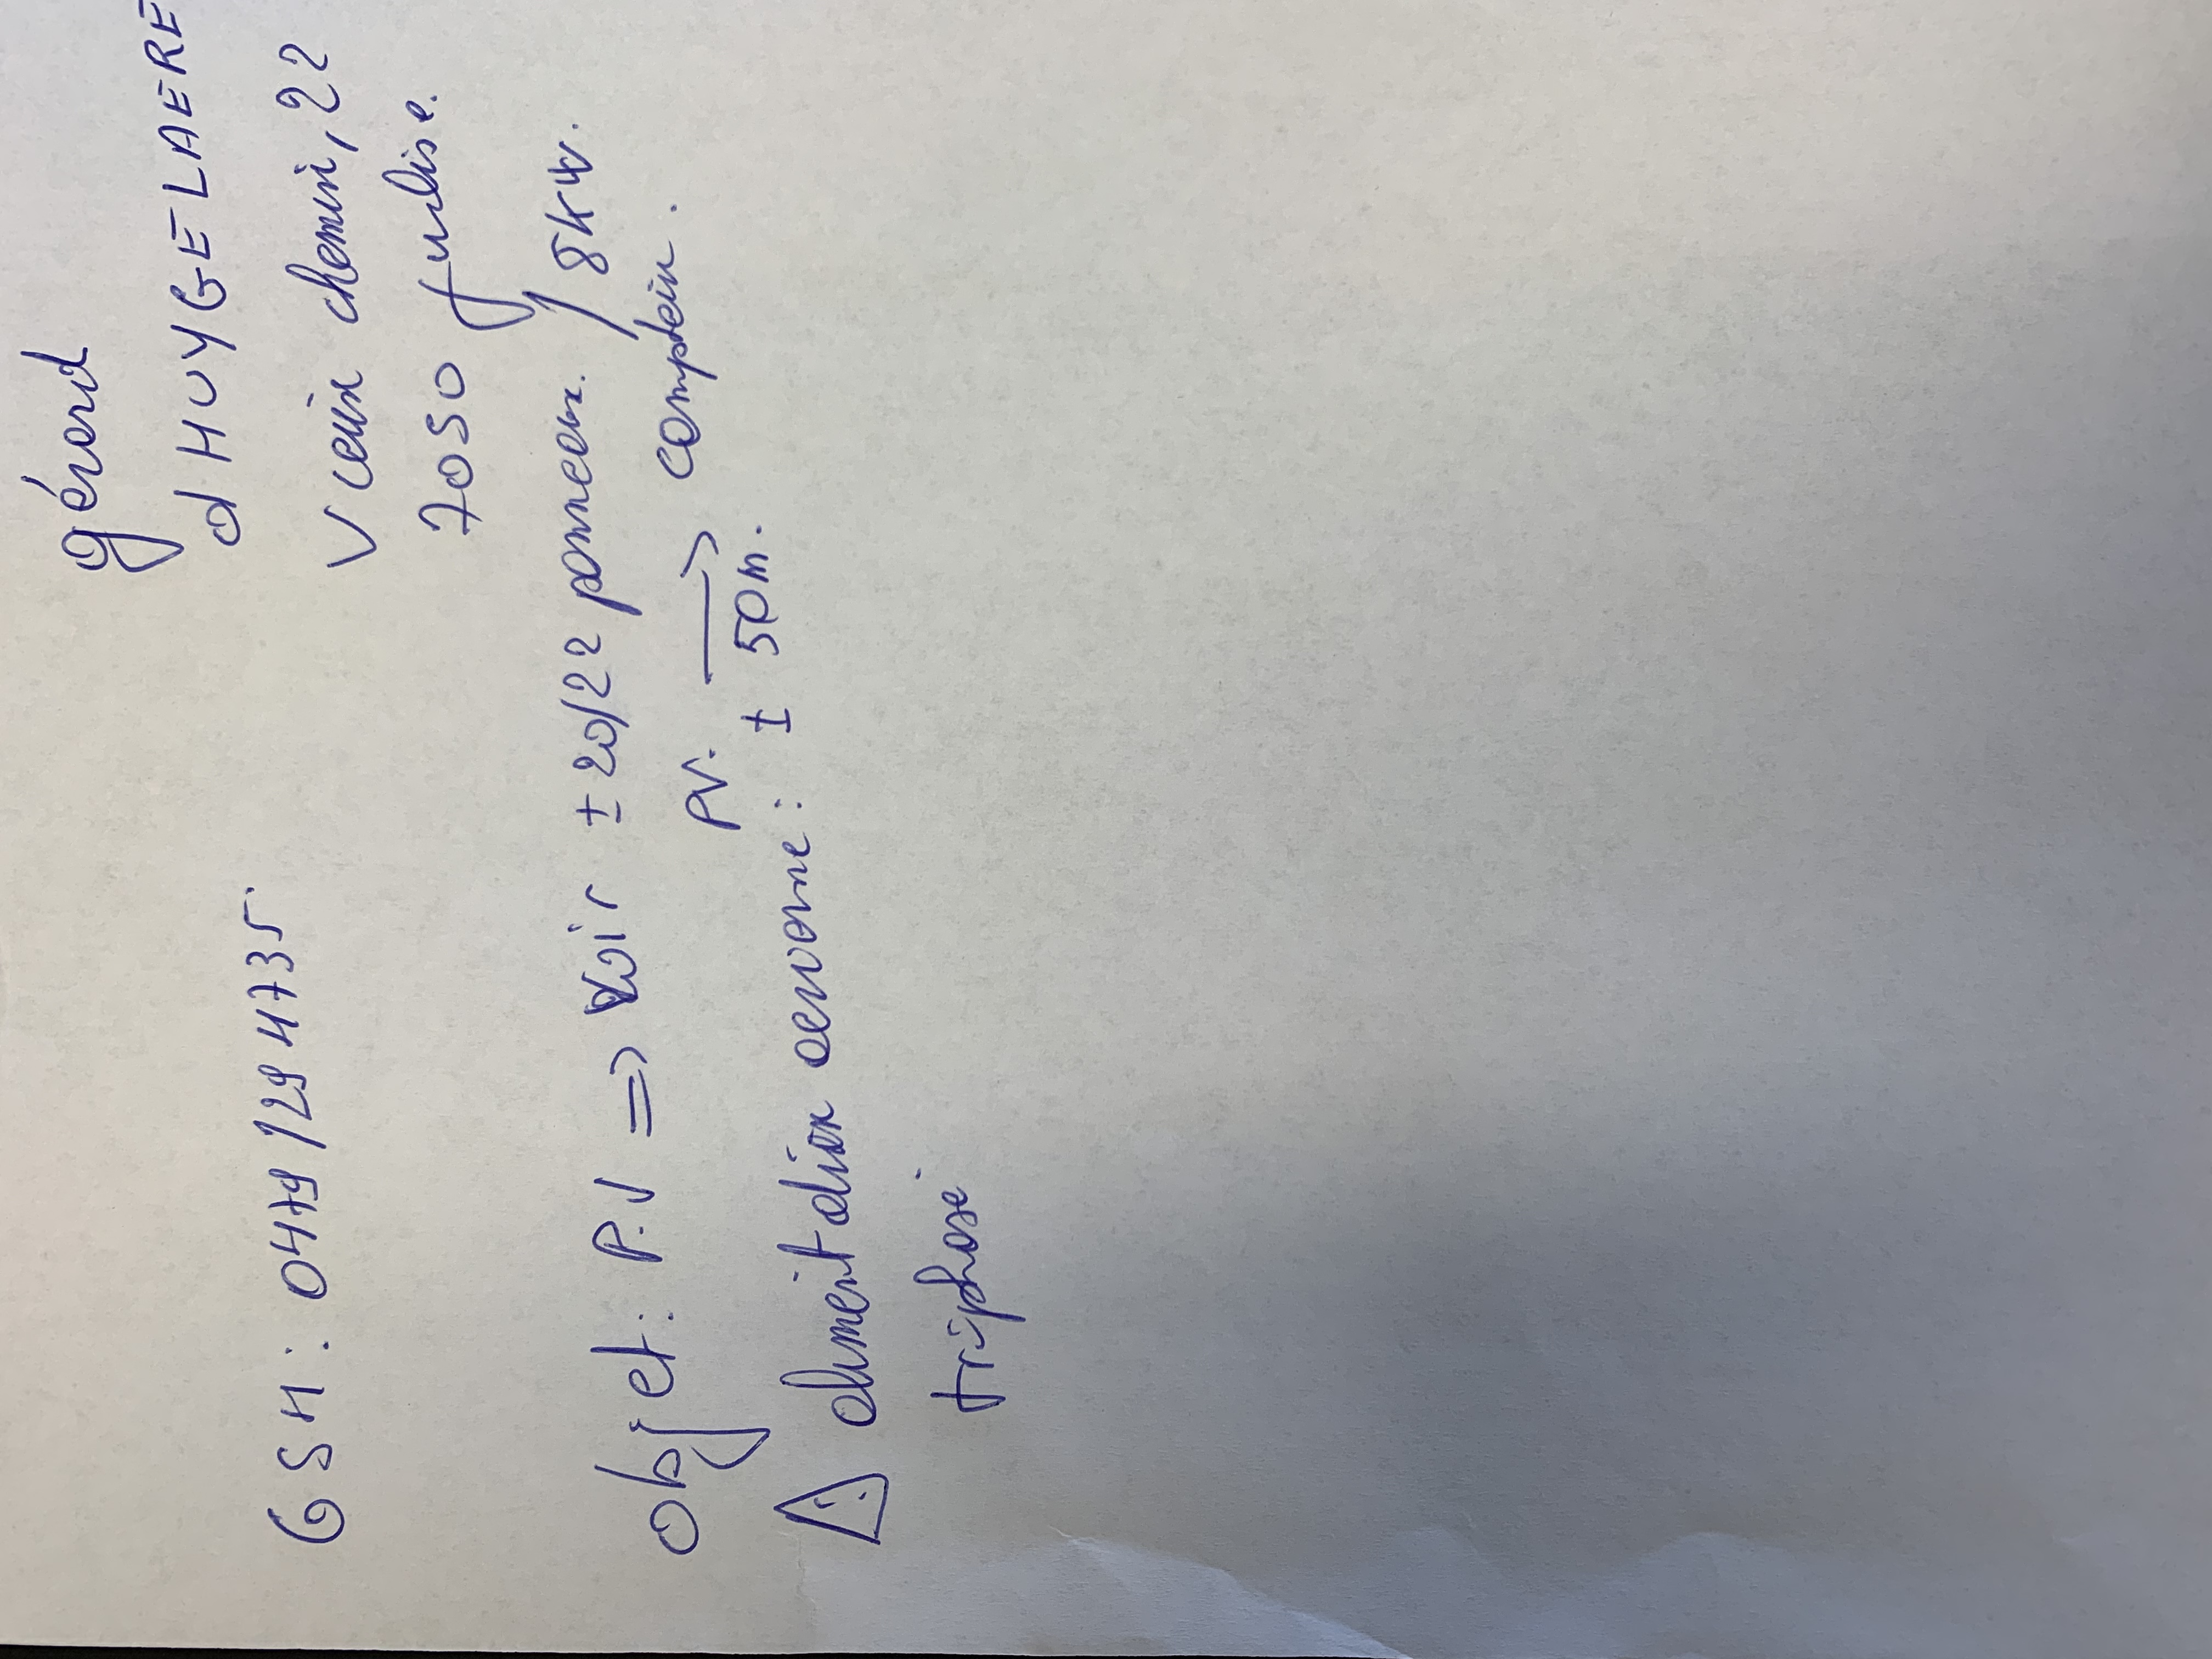 gérard
d HUYGELAERE
Vieux chemin, 22
GSM : 0479/29 47 35.
7050 Jurbise.
objet : P.V => Voir ± 20/22 panneaux. / 8 KW.
PV. → compteur.
⚠ alimentation : ± 50m.
triphasé